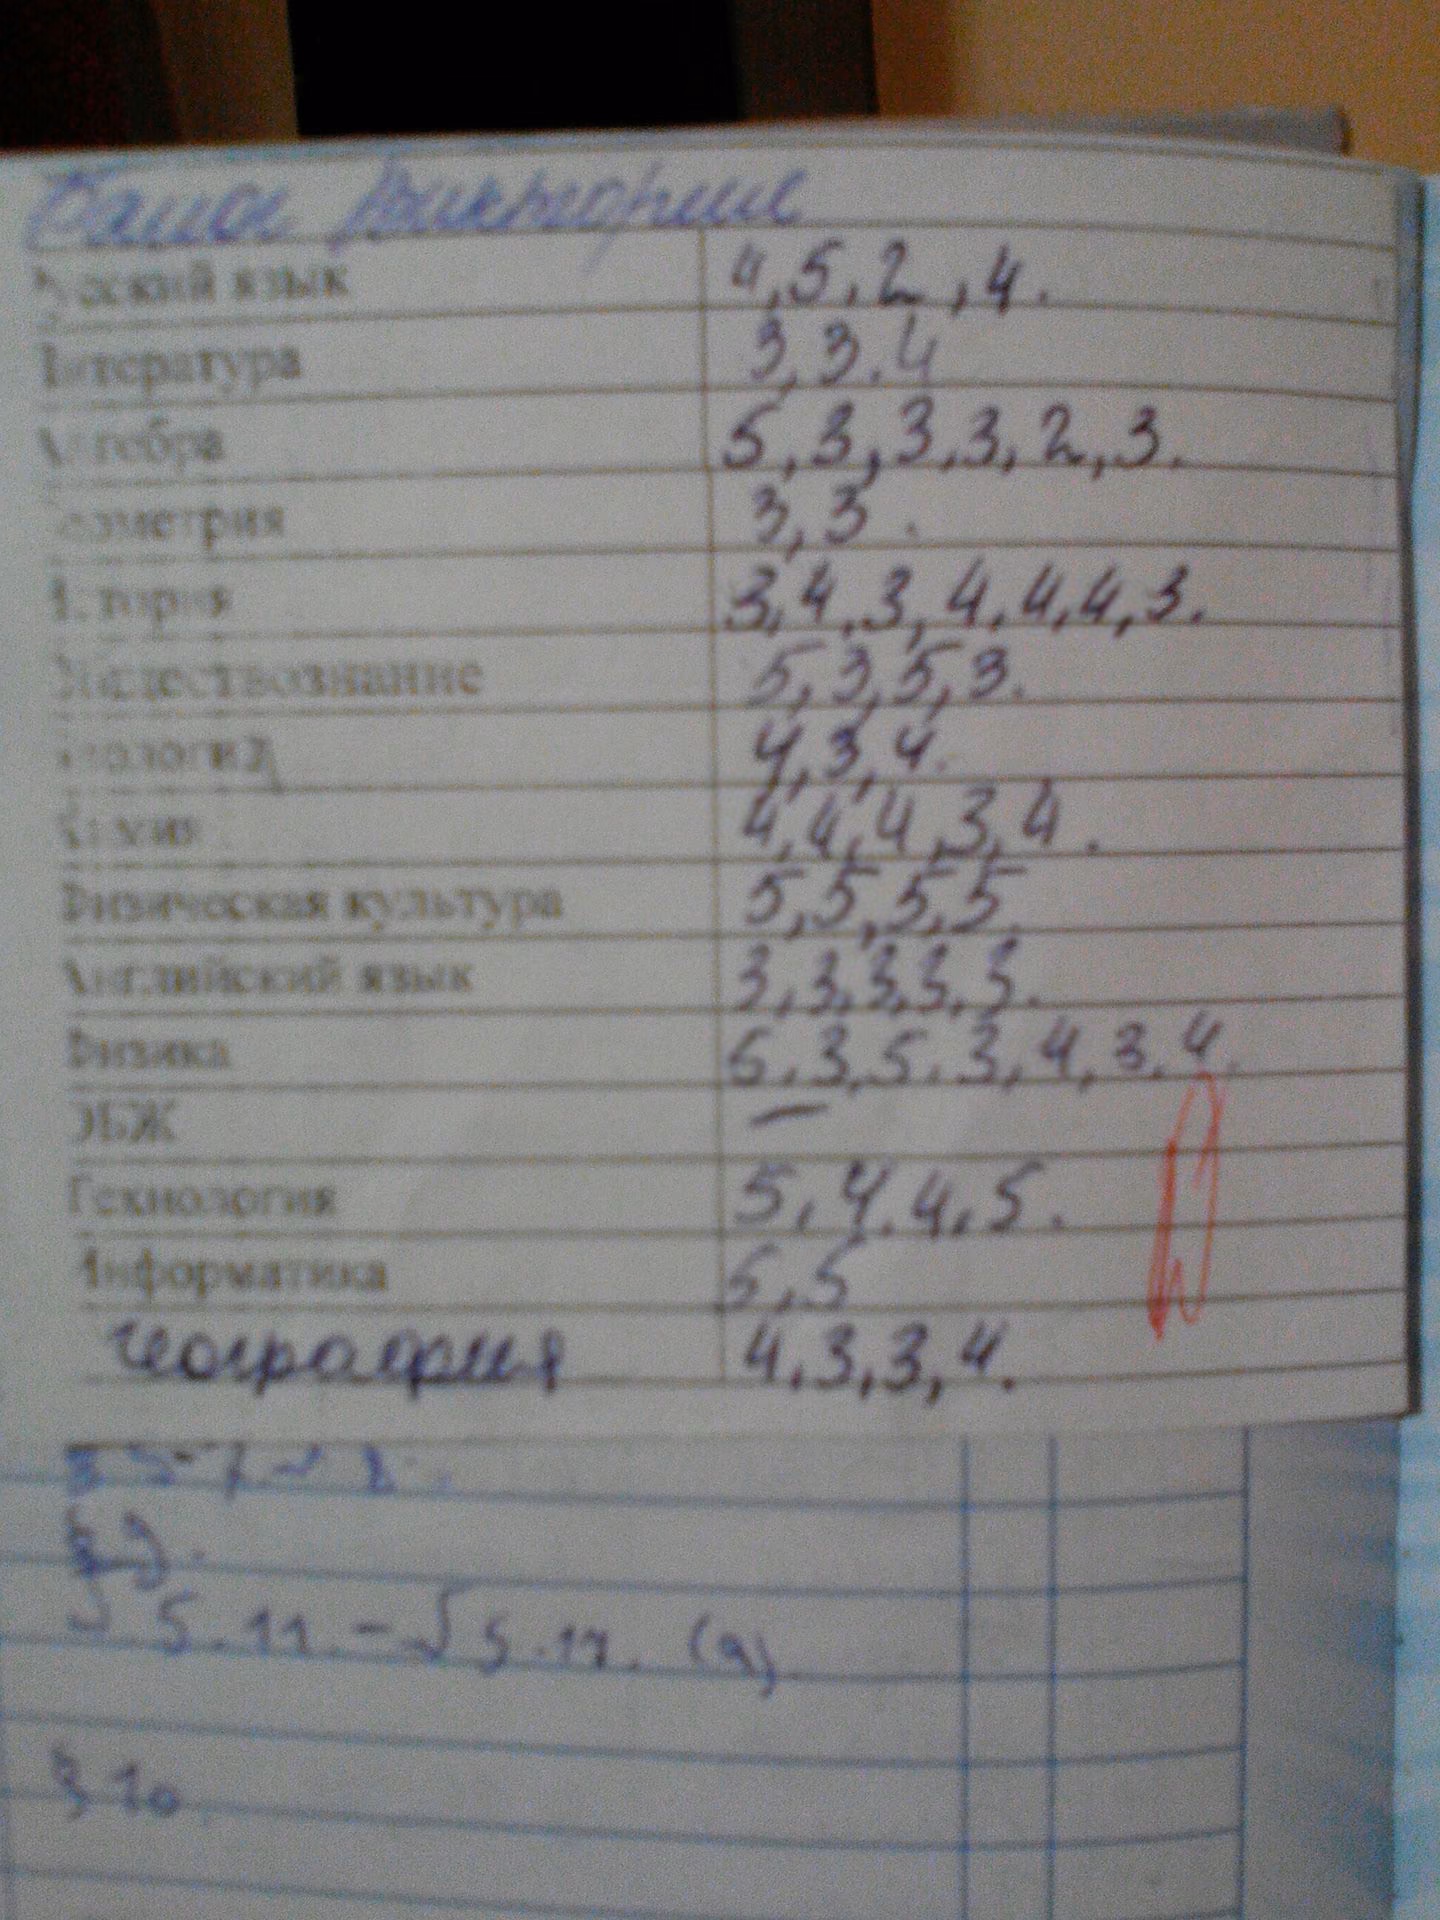 Русский язык 4, 5, 2, 4.
Литература 3, 3. 4
Алгебра 5, 3, 3, 3, 2, 3.
Геометрия 3, 3.
История 3, 4, 3, 4, 4, 4, 3.
Обществознание 5, 3, 5, 3.
Биология 4, 3, 4.
Химия 4, 4, 4, 3, 4.
Физическая культура 5, 5, 5, 5
Английский язык 3, 3, 3, 3, 3.
Физика 5, 3, 5, 3, 4, 3, 4.
ОБЖ —
Технология 5, 4, 4, 5.
Информатика 5, 5
география 4, 3, 3, 4.
§ 10